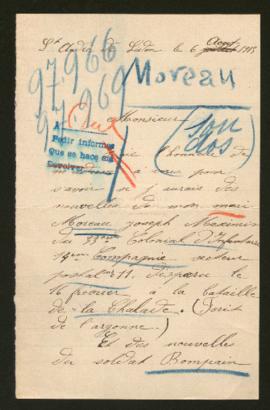 St André de Lidon le 6 Aout 1915
97.966
97.969
Moreau
Oui
Monsieur
(son dos)
A
Pedir informes
que se hace sin
Devolver
l'honneur de
à vous pour
savoir si j'aurais des
nouvelles de mon mari
Moreau Joseph Maximin
du 33ème Colonial d'Infanterie
14ème Compagnie secteur
postal 11. disparu le
16 février à la bataille
de la Chalade. (Forêt
de l'argonne.)
Et des nouvelles
du soldat Bompain